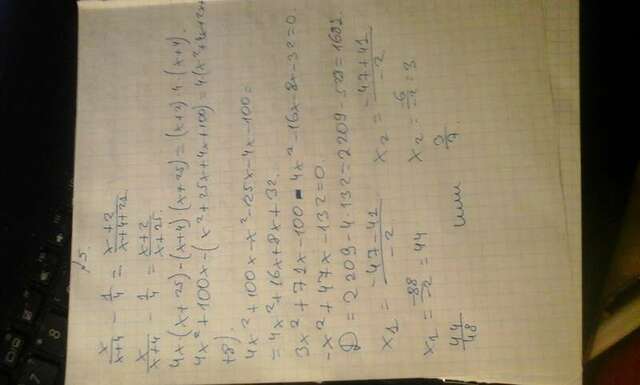 №5.
x/(x+4) - 1/4 = (x+2)/(x+4+21)
x/(x+4) - 1/4 = (x+2)/(x+25)
4x·(x+25)-(x+4)(x+25)=(x+2)4·(x+4).
4x²+100x-(x²+25x+4x+100)=4(x²+4x+2x+
+8).
4x²+100x-x²-25x-4x-100=
=4x²+16x+8x+32.
3x²+71x-100-4x²-16x-8x-32=0.
-x²+47x-132=0.
D=2209-4·132=2209-528=1681.
x₁ = (-47-41)/-2 x₂ = (-47+41)/-2
x₁ = -88/-2 = 44 x₂ = -6/-2 = 3
44/48 или 3/7